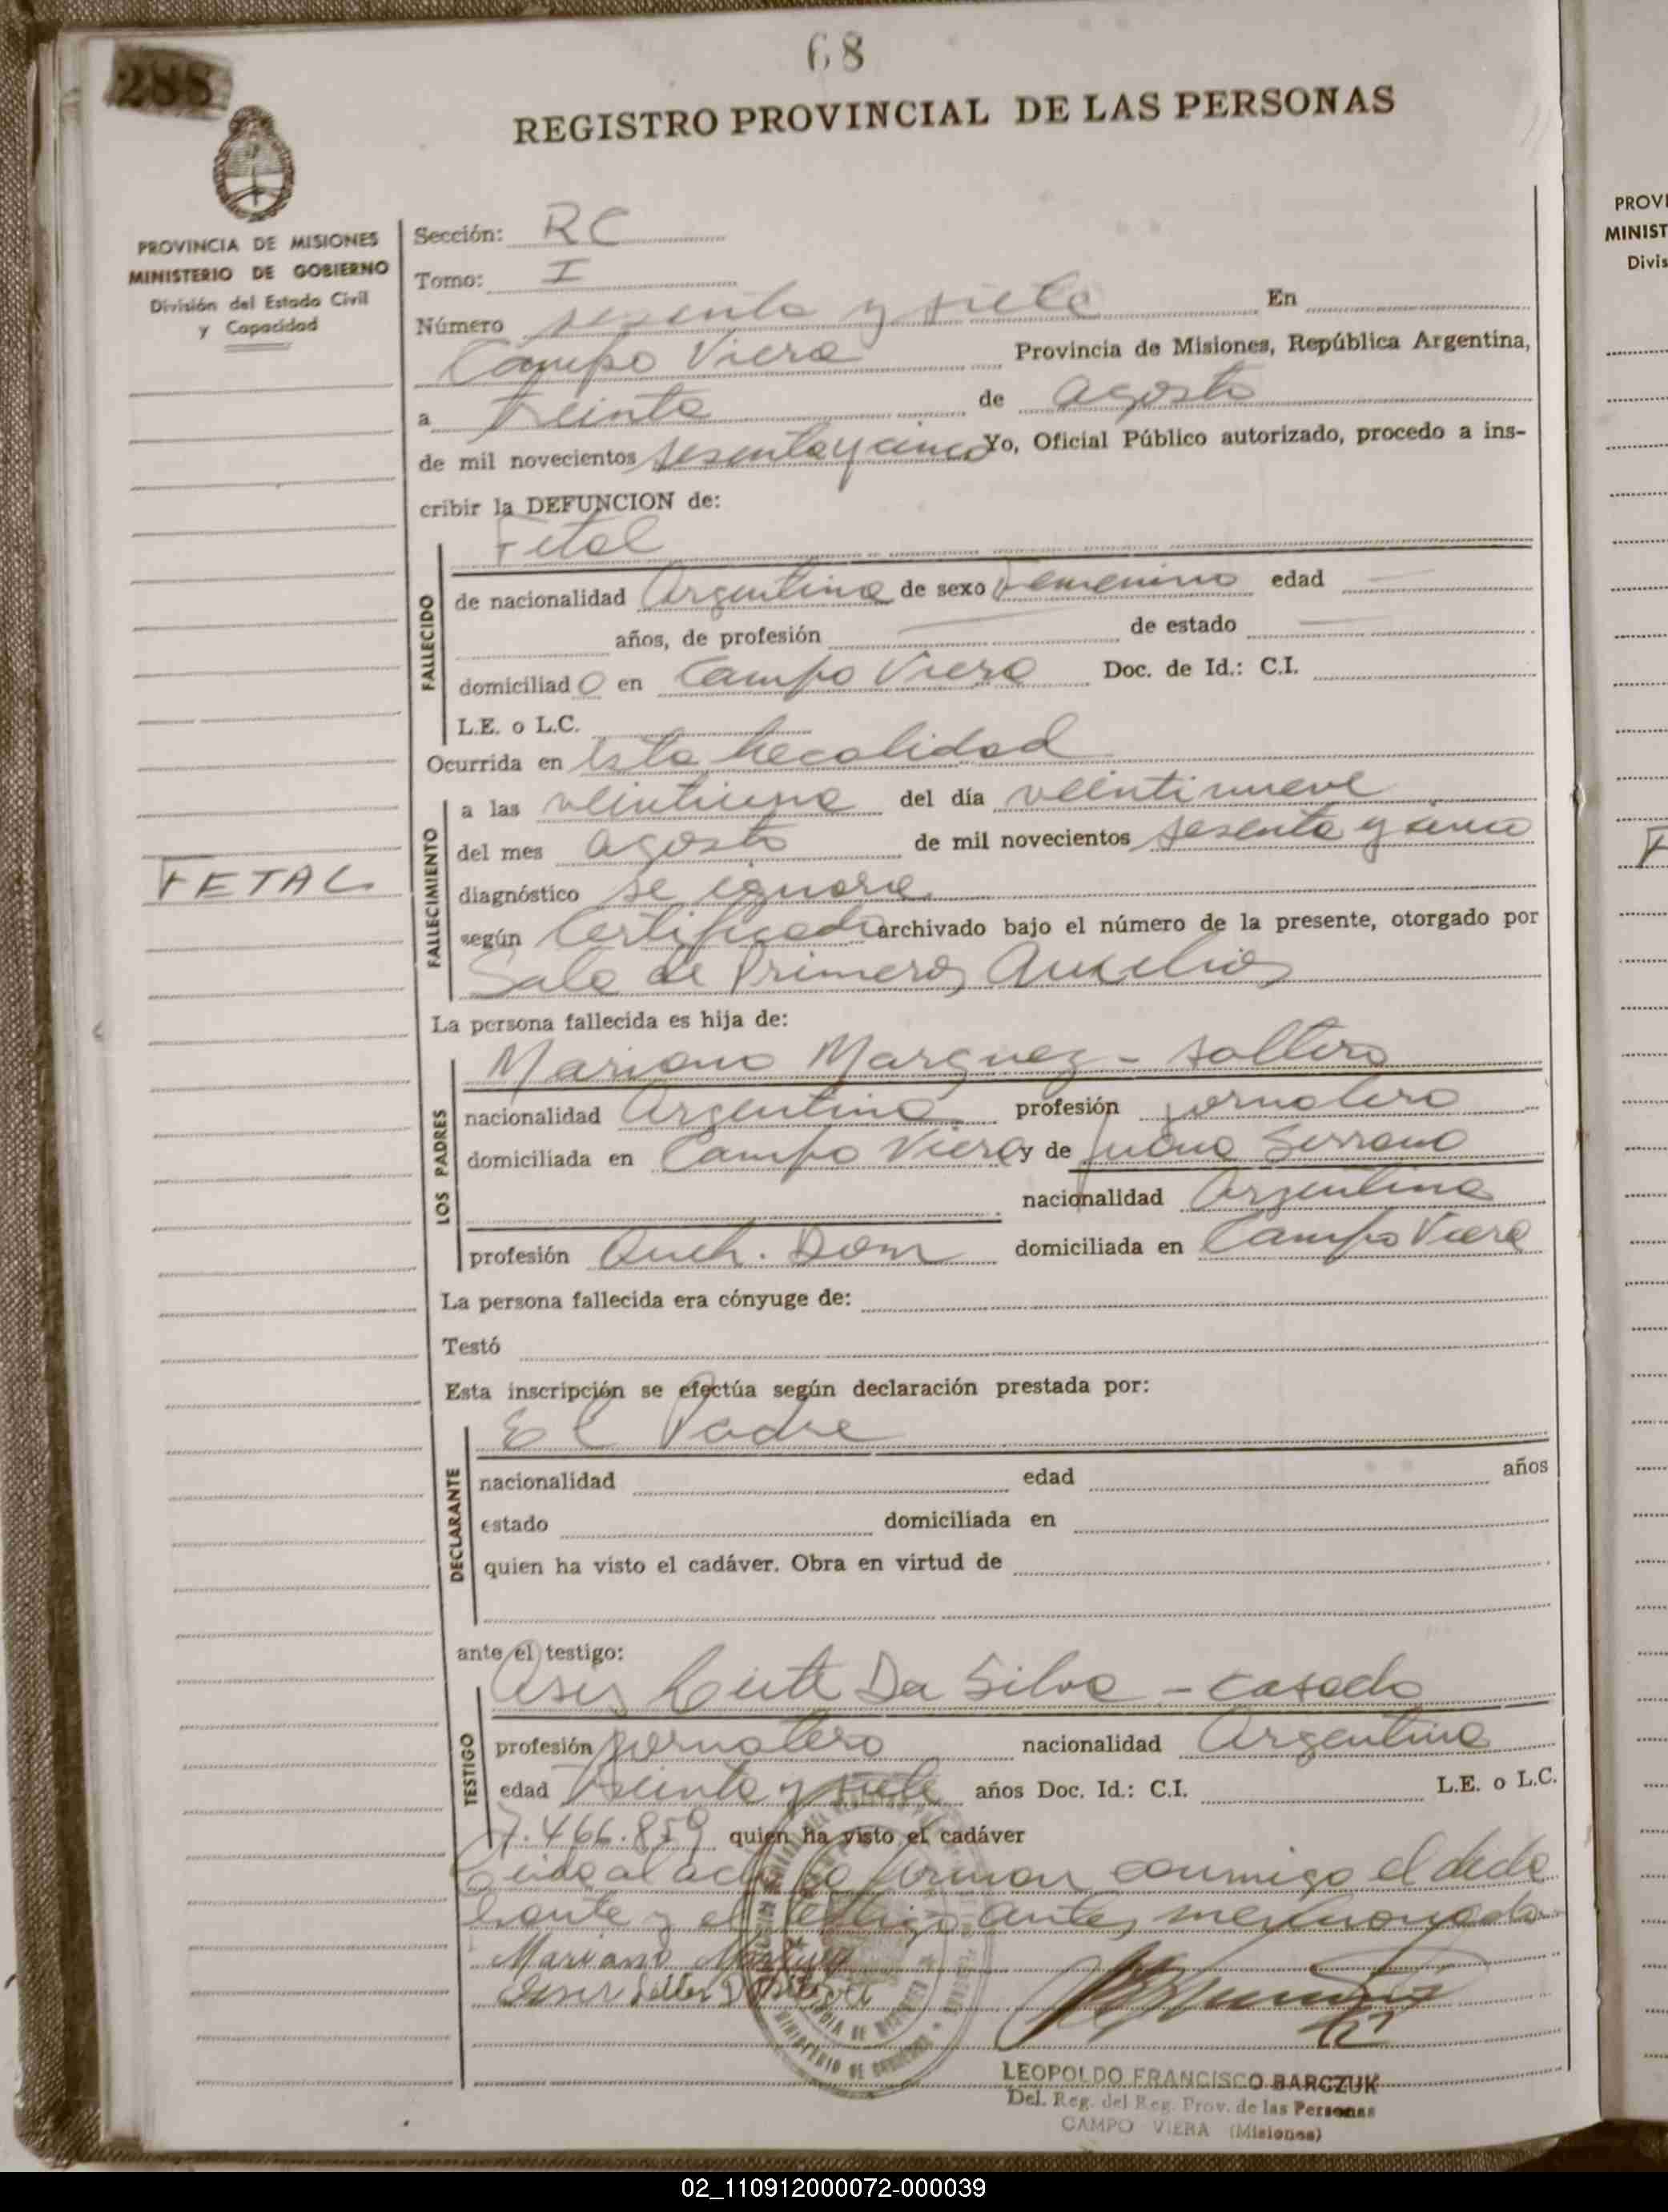 68
288
REGISTRO PROVINCIAL DE LAS PERSONAS
PROVINCIA DE MISIONES
MINISTERIO DE GOBIERNO
División del Estado Civil
y Capacidad
Sección: RC
Tomo: I
Número sesenta y siete En
Campo Viera Provincia de Misiones, República Argentina,
a treinta de agosto
de mil novecientos sesenta y cinco Yo, Oficial Público autorizado, procedo a ins-
cribir la DEFUNCION de:
Fetal
FALLECIDO
de nacionalidad Argentina de sexo Femenino edad —
años, de profesión — de estado —
domiciliado en Campo Viera Doc. de Id.: C.I.
L.E. o L.C.
Ocurrida en esta localidad
FALLECIMIENTO
a las veintiuna del día veintinueve
del mes agosto de mil novecientos sesenta y cinco
FETAL
diagnóstico se ignora
según Certificado archivado bajo el número de la presente, otorgado por
Sala de Primeros Auxilios
La persona fallecida es hija de:
LOS PADRES
Mariano Marquez - soltero
nacionalidad Argentina profesión jornalero
domiciliada en Campo Viera y de Juana Serrano
nacionalidad Argentina
profesión Queh. Dom domiciliada en Campo Viera
La persona fallecida era cónyuge de:
Testó
Esta inscripción se efectúa según declaración prestada por:
DECLARANTE
El Padre
nacionalidad edad años
estado domiciliada en
quien ha visto el cadáver. Obra en virtud de
ante el testigo:
TESTIGO
Da Silva - casado
profesión jornalero nacionalidad Argentina
edad treinta y siete años Doc. Id.: C.I. L.E. o L.C.
7.466.859 quien ha visto el cadáver
Leida al acta la firman conmigo el decla
rante y el testigo antes mencionado
Mariano Marquez
LEOPOLDO FRANCISCO BARCZUK
Del. Reg. del Reg. Prov. de las Personas
CAMPO VIERA (Misiones)
MINISTERIO DE GOBIERNO
PROVI
MINIST
Divis
F
02_110912000072-000039